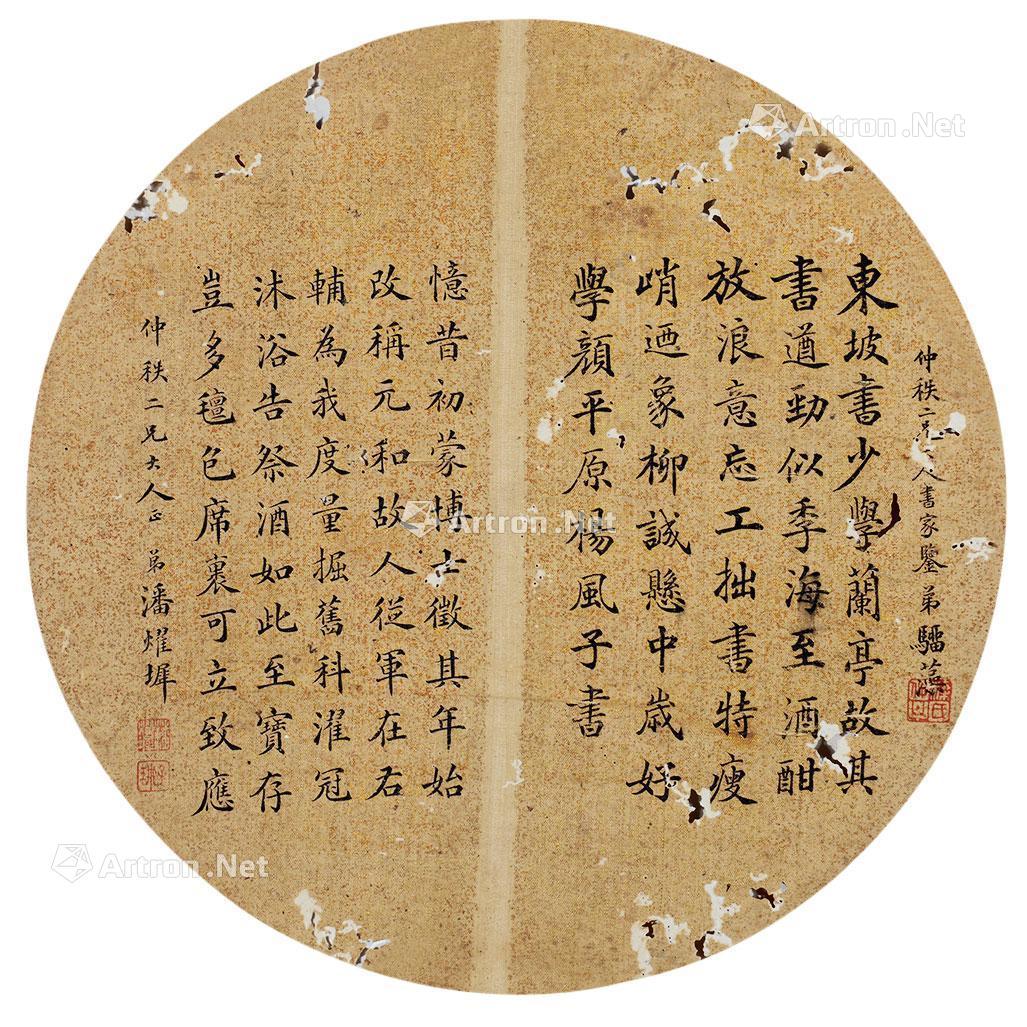 東坡書少學蘭亭故其
書遒勁似季海至酒酣
放浪意忘工拙書特瘦
峭迺象柳誠懸中歲好
學顏平原楊風子書
仲秩二兄大人書家鑒 弟驑蔭
憶昔初蒙博士徵其年始
改稱元和故人從軍在右
輔為我度量掘舊科濯冠
沐浴告祭酒如此至寶存
豈多氊包席裹可立致應
仲秩二兄大人正 弟潘燿墀
Artron.Net
Artron.Net
Artron.Net
Artron.Net